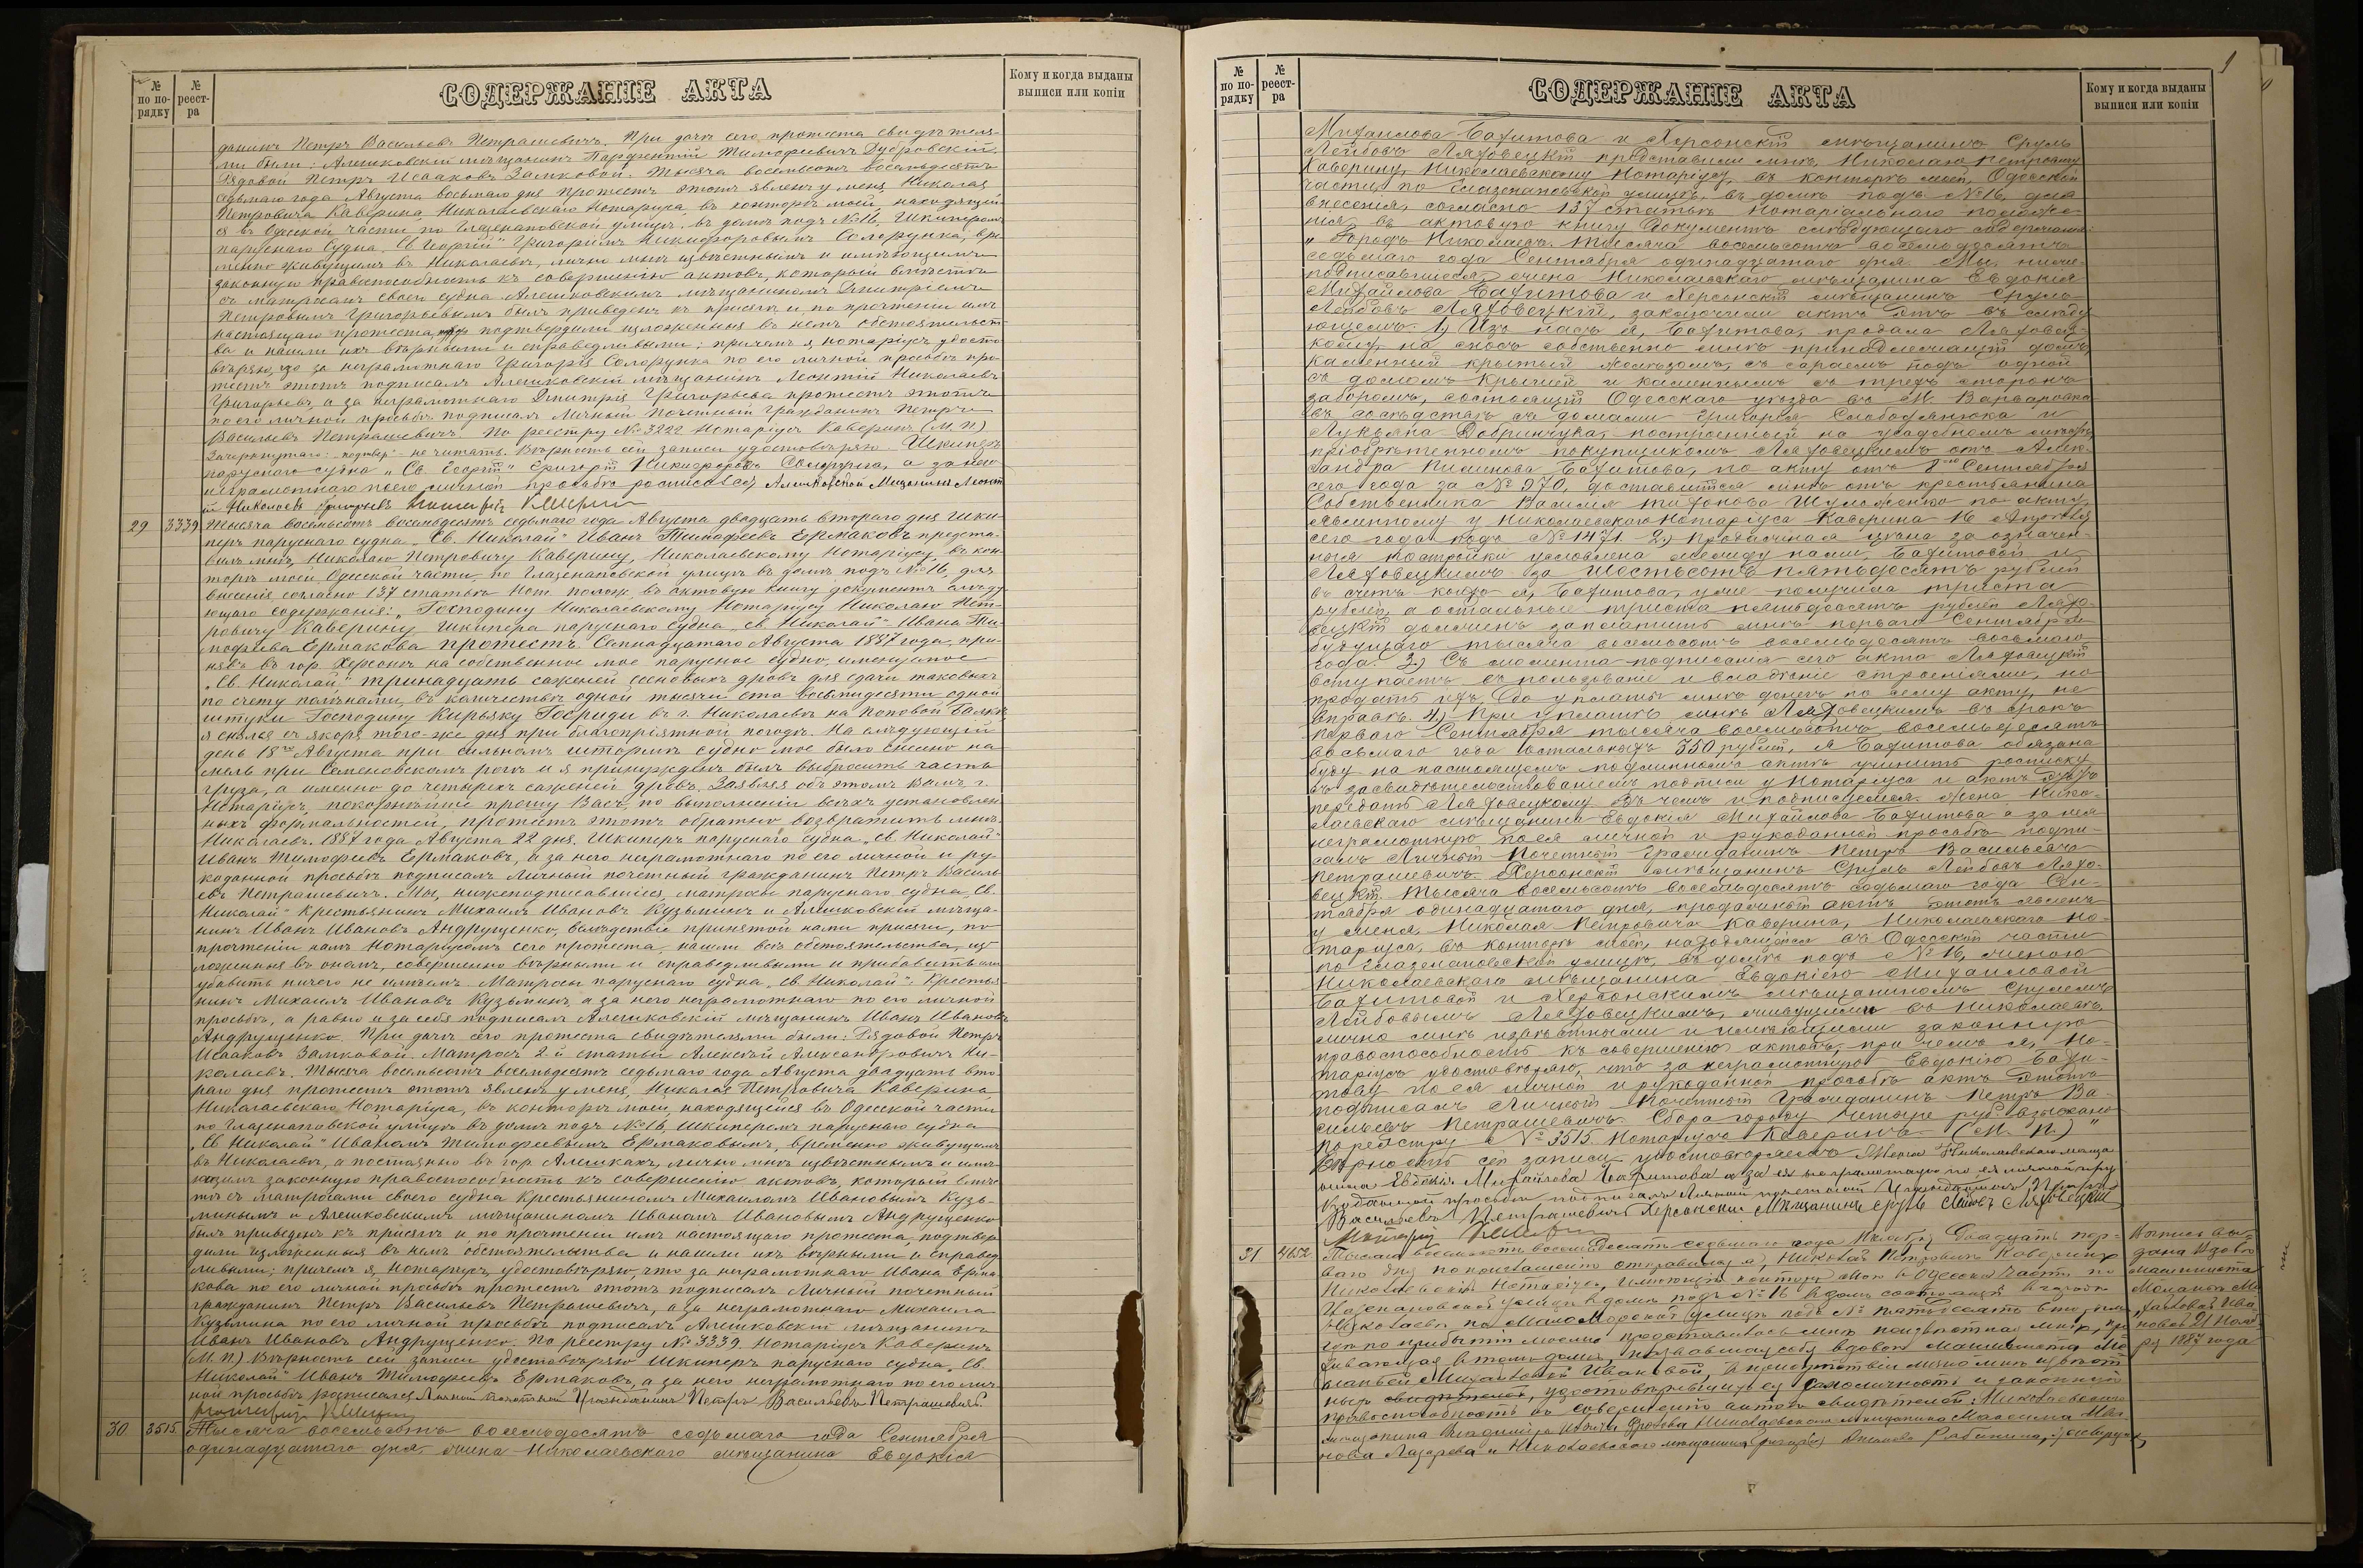 № по по-рядку
№ реест-ра
СОДЕРЖАНІЕ АКТА
Кому и когда выданы выписи или копіи
данинъ Петръ Васильевъ Петрашевичъ. При дачѣ сего протеста свидѣтеля-
ми были: Алешковскій мѣщанинъ Парфентій Тимофеевичъ Дубровскій.
Рядовой Петръ Исааковъ Замковой. Тысяча восемьсотъ восемьдесятъ
седьмаго года Августа восьмаго дня протестъ этотъ явленъ у меня Николая
Петровича Каверина, Николаевскаго Нотаріуса въ конторѣ моей, находящей-
ся въ Одесской части по Глазенаповской улицѣ, въ домѣ подъ №16, Шкиперомъ
паруснаго судна „Св. Георгій" Григоріемъ Никифоровымъ Солорунка, вре-
менно живущимъ въ Николаевѣ, лично мнѣ извѣстнымъ и имѣющимъ
законную правоспособность къ совершенію актовъ, который вмѣстѣ
съ матросомъ своего судна Алешковскимъ мѣщаниномъ Дмитріемъ
Петровымъ Григорьевымъ былъ приведенъ къ присягѣ и по прочтеніи имъ
настоящаго протеста, подтвердили изложенныя въ немъ обстоятельст-
ва и нашли ихъ вѣрными и справедливыми; причемъ я, нотаріусъ, удосто-
вѣряю, что за неграмотнаго Григорія Солорунка по его личной просьбѣ про-
тестъ этотъ подписалъ Алешковскій мѣщанинъ Леонтій Николаевъ
Григорьевъ, а за неграмотнаго Дмитрія Григорьева протестъ этотъ
по его личной просьбѣ подписалъ Личный Почетный Гражданинъ Петръ
Васильевъ Петрашевичъ. По реестру №3222 Нотаріусъ Каверинъ (М. П.)
Зачеркнутаго: „подтвер" не читать. Вѣрность сей записи удостовѣряю. Шкиперъ
паруснаго судна „Св. Георгій" Григорій Никифоровъ Солорунка, а за него
неграмотнаго по его личной просьбѣ росписался, Алешковскій Мещанинъ Леонт
ій Николаевъ Григорьевъ
29 3339 Тысяча восемьсотъ восемьдесятъ седьмаго года Августа двадцать втораго дня Шки-
перъ паруснаго судна „Св. Николай" Иванъ Тимофеевъ Ермаковъ предста-
вилъ мнѣ, Николаю Петровичу Каверину, Николаевскому Нотаріусу въ кон-
торѣ моей, Одесской части, по Глазенаповской улицѣ въ домѣ подъ №16, для
внесенія, согласно 137 статьи Нот. полож. въ актовую книгу документъ слѣду-
ющаго содержанія: „Господину Николаевскому Нотаріусу Николаю Пет-
ровичу Каверину Шкипера паруснаго судна „Св. Николай" Ивана Ти-
мофеева Ермакова протестъ. Семнадцатаго Августа 1887 года, при-
нявъ въ гор. Херсонѣ на собственное мое парусное судно, именуемое
„Св. Николай" тринадцать саженей сосновыхъ дровъ для сдачи таковыхъ
по счету полѣнами, въ количествѣ одной тысячи ста восьмидесяти одной
штуки Господину Кирьяку Госриди въ г. Николаевѣ на Поповой Балкѣ
я снялся съ якоря того-же дня при благопріятной погодѣ. На слѣдующій
день 18го Августа при сильномъ штормѣ судно мое было снесено на
мель при Семеновскомъ рогѣ и я принужденъ былъ выбросить часть
груза, а именно до четырехъ саженей дровъ. Заявляя объ этомъ Вамъ г.
Нотаріусъ, покорнѣйше прошу Васъ, по выполненіи всѣхъ установлен-
ныхъ формальностей, протестъ этотъ обратно возвратить мнѣ.
Николаевъ. 1887 года Августа 22 дня. Шкиперъ паруснаго судна „Св. Николай"
Иванъ Тимофеевъ Ермаковъ, а за него неграмотнаго по его личной и ру-
коданной просьбѣ подписалъ Личный почетный гражданинъ Петръ Василь-
евъ Петрашевичъ. Мы, нижеподписавшіеся, матросы паруснаго судна „Св.
Николай" Крестьянинъ Михаилъ Ивановъ Кузьминъ и Алешковскій мѣща-
нинъ Иванъ Ивановъ Андрущенко, вслѣдствіе принятой нами присяги, по
прочтеніи намъ Нотаріусомъ сего протеста, нашли всѣ обстоятельства, из-
ложенныя въ ономъ, совершенно вѣрными и справедливыми и прибавить или
убавить ничего не имѣемъ. Матросы паруснаго судна „Св. Николай": Крестья-
нинъ Михаилъ Ивановъ Кузьминъ, а за него неграмотнаго по его личной
просьбѣ, а равно и за себя подписалъ Алешковскій мѣщанинъ Иванъ Ивановъ
Андрущенко. При дачѣ сего протеста свидѣтелями были: Рядовой Петръ
Исааковъ Замковой. Матросъ 2-й статьи Алексѣй Александровичъ Ни-
колаевъ. Тысяча восемьсотъ восемьдесятъ седьмаго года Августа двадцать вто-
раго дня протестъ этотъ явленъ у меня, Николая Петровича Каверина,
Николаевскаго Нотаріуса, въ конторѣ моей, находящейся въ Одесской части
по Глазенаповской улицѣ въ домѣ подъ №16, Шкиперомъ паруснаго судна
„Св. Николай" Иваномъ Тимофеевымъ Ермаковымъ, временно живущимъ
въ Николаевѣ, а постоянно въ гор. Алешкахъ, лично мнѣ извѣстнымъ и имѣ-
ющимъ законную правоспособность къ совершенію актовъ, который вмѣс-
тѣ съ матросами своего судна Крестьяниномъ Михаиломъ Ивановымъ Кузь-
минымъ и Алешковскимъ мѣщаниномъ Иваномъ Ивановымъ Андрущенко
былъ приведенъ къ присягѣ и, по прочтеніи имъ настоящаго протеста, подтвер-
дили изложенныя въ немъ обстоятельства и нашли ихъ вѣрными и справед-
ливыми; причемъ я, Нотаріусъ, удостовѣряю, что за неграмотнаго Ивана Ерма-
кова по его личной просьбѣ протестъ этотъ подписалъ Личный почетный
гражданинъ Петръ Васильевъ Петрашевичъ, а за неграмотнаго Михаила
Кузьмина по его личной просьбѣ подписалъ Алешковскій мѣщанинъ
Иванъ Ивановъ Андрущенко. По реестру №3339. Нотаріусъ Каверинъ
(М. П.) Вѣрность сей записи удостовѣряю Шкиперъ паруснаго судна „Св.
Николай" Иванъ Тимофеевъ Ермаковъ, а за него неграмотнаго по его лич-
ной просьбѣ росписался Личный Почетный Гражданинъ Петръ Васильевъ Петрашевичъ.
30 3515 Тысяча восемьсотъ восемьдесятъ седьмаго года Сентября
одинадцатаго дня, жена Николаевскаго мѣщанина Евдокія
№ по по-рядку
№ реест-ра
СОДЕРЖАНІЕ АКТА
Кому и когда выданы выписи или копіи
Михайлова Бахитова и Херсонскій мѣщанинъ Сруль
Лейбовъ Ляховецкій представили мнѣ, Николаю Петровичу
Каверину, Николаевскому Нотаріусу, въ конторѣ моей, Одесской
части, по Глазенаповской улицѣ, въ домѣ подъ №16, для
внесенія, согласно 137 статьи Нотаріальнаго положе-
нія, въ актовую книгу документъ слѣдующаго содержанія:
„Городъ Николаевъ. Тысяча восемьсотъ восемьдесятъ
седьмаго года Сентября одинадцатаго дня. Мы, ниже-
подписавшіеся, жена Николаевскаго мѣщанина Евдокія
Михайлова Бахитова и Херсонскій мѣщанинъ Сруль
Лейбовъ Ляховецкій, заключили актъ этотъ въ слѣду-
ющемъ. 1) Изъ насъ я, Бахитова, продала Ляховец-
кому, на сносъ собственно мнѣ принадлежащій домъ,
каменный крытый желѣзомъ, съ сараемъ подъ одной
съ домомъ крышей и каменнымъ съ трехъ сторонъ
заборомъ, состоящій Одесскаго уѣзда въ М. Варваровка
въ сосѣдствѣ съ домами Григорія Слободянюка и
Лукьяна Добринчука, построенный на усадебномъ мѣстѣ,
пріобрѣтенномъ покупщикомъ Ляховецкимъ отъ Алек-
сандра Бахитова, по акту отъ Сентября
сего года за №970, доставшійся мнѣ отъ крестьянина
Собственника Василія Тифонова Шульженко по акту,
явленному у Николаевскаго Нотаріуса Каверина 16 Апрѣля
сего года подъ №1471. 2) Продажная цѣна за означен-
ныя постройки условлена между нами, Бахитовой и
Ляховецкимъ за шестьсотъ пятьдесятъ рублей
въ счетъ коихъ я, Бахитова, уже получила триста
рублей, а остальные триста пятьдесятъ рублей Ляхо-
вецкій долженъ заплатить мнѣ перваго Сентября
будущаго тысяча восемьсотъ восемьдесятъ восьмаго
года. 3) Съ момента подписанія сего акта Ляховецкій
вступаетъ въ пользованіе и владѣніе строеніями, но
продать ихъ, до уплаты мнѣ денегъ по сему акту, не
вправѣ. 4) При уплатѣ мнѣ Ляховецкимъ въ срокъ
перваго Сентября тысяча восемьсотъ восемьдесятъ
восьмаго года остальныхъ 350 рублей, я Бахитова обязана
буду на настоящемъ подлинномъ актѣ учинить росписку
съ засвидѣтельствованіемъ подписи у Нотаріуса и актъ этотъ
передать Ляховецкому въ чемъ и подписуемся. Жена Нико-
лаевскаго мѣщанина Евдокія Михайлова Бахитова а за нея
неграмотную по ея личной и рукоданной просьбѣ подпи-
салъ Личный Почетный Гражданинъ Петръ Васильевъ
Петрашевичъ. Херсонскій мѣщанинъ Сруль Лейбовъ Ляхо-
вецкій. Тысяча восемьсотъ восемьдесятъ седьмаго года Сен-
тября одинадцатаго дня, продажный актъ этотъ явленъ
у меня, Николая Петровича Каверина, Николаевскаго Но-
таріуса, въ конторѣ моей, находящейся въ Одесской части
по Глазенаповской улицѣ, въ домѣ подъ №16, женою
Николаевскаго мѣщанина Евдокіею Михайловой
Бахитовой и Херсонскимъ мѣщаниномъ Срулемъ
Лейбовымъ Ляховецкимъ, живущими въ Николаевѣ,
лично мнѣ извѣстными и имѣющими законную
правоспособность къ совершенію актовъ, при чемъ я, Но-
таріусъ удостовѣряю, что за неграмотную Евдокію Бахи-
тову по ея личной и рукоданной просьбѣ актъ этотъ
подписалъ Личный Почетный Гражданинъ Петръ Ва-
сильевъ Петрашевичъ. Сбора городу четыре руб. взыскано
По реестру №3515 Нотаріусъ Каверинъ (М. П.)"
Вѣрность сей записи удостовѣряемъ Жена Николаевскаго мѣща-
нина Евдокія Михайлова Бахитова а за ея неграмотную по ея личной и ру-
коданной просьбѣ подписалъ Личный почетный Гражданинъ Петръ
Васильевъ Петрашевичъ Херсонскій Мѣщанинъ Сруль Лейбовъ Ляховецкій
31 4652 Тысяча восемьсотъ восемьдесятъ седьмаго года Ноября двадцать пер-
ваго дня по приглашенію отправился я, Николай Петровичъ Каверинъ
Николаевскій Нотаріусъ, имѣющій контору свою въ Одесской части по
Глазенаповской улицѣ въ домѣ подъ №16 въ домъ состоящій въ городѣ
Николаевѣ по Мало Морской улицѣ подъ №
по прибытіи моемъ представилась мнѣ неизвѣстная мнѣ, про-
живающая въ томъ домѣ, назвавшая себя вдовой машиниста Ма-
ланьей Михайловой Ивановой, въ присутствіи лично мнѣ извѣст-
ныхъ свидѣтелей, удостовѣрившихъ ея самоличность и законную
правоспособность къ совершенію актовъ свидѣтелей: Николаевскаго
мѣщанина Владиміра Фролова Николаевскаго мѣщанина Максима
нова Лазарева и Николаевскаго мѣщанина Рябинина,
Выпись вы-
дана Вдовѣ
машиниста
Маланьѣ Ми-
хайловой Ива-
новой 21 Нояб-
ря 1887 года